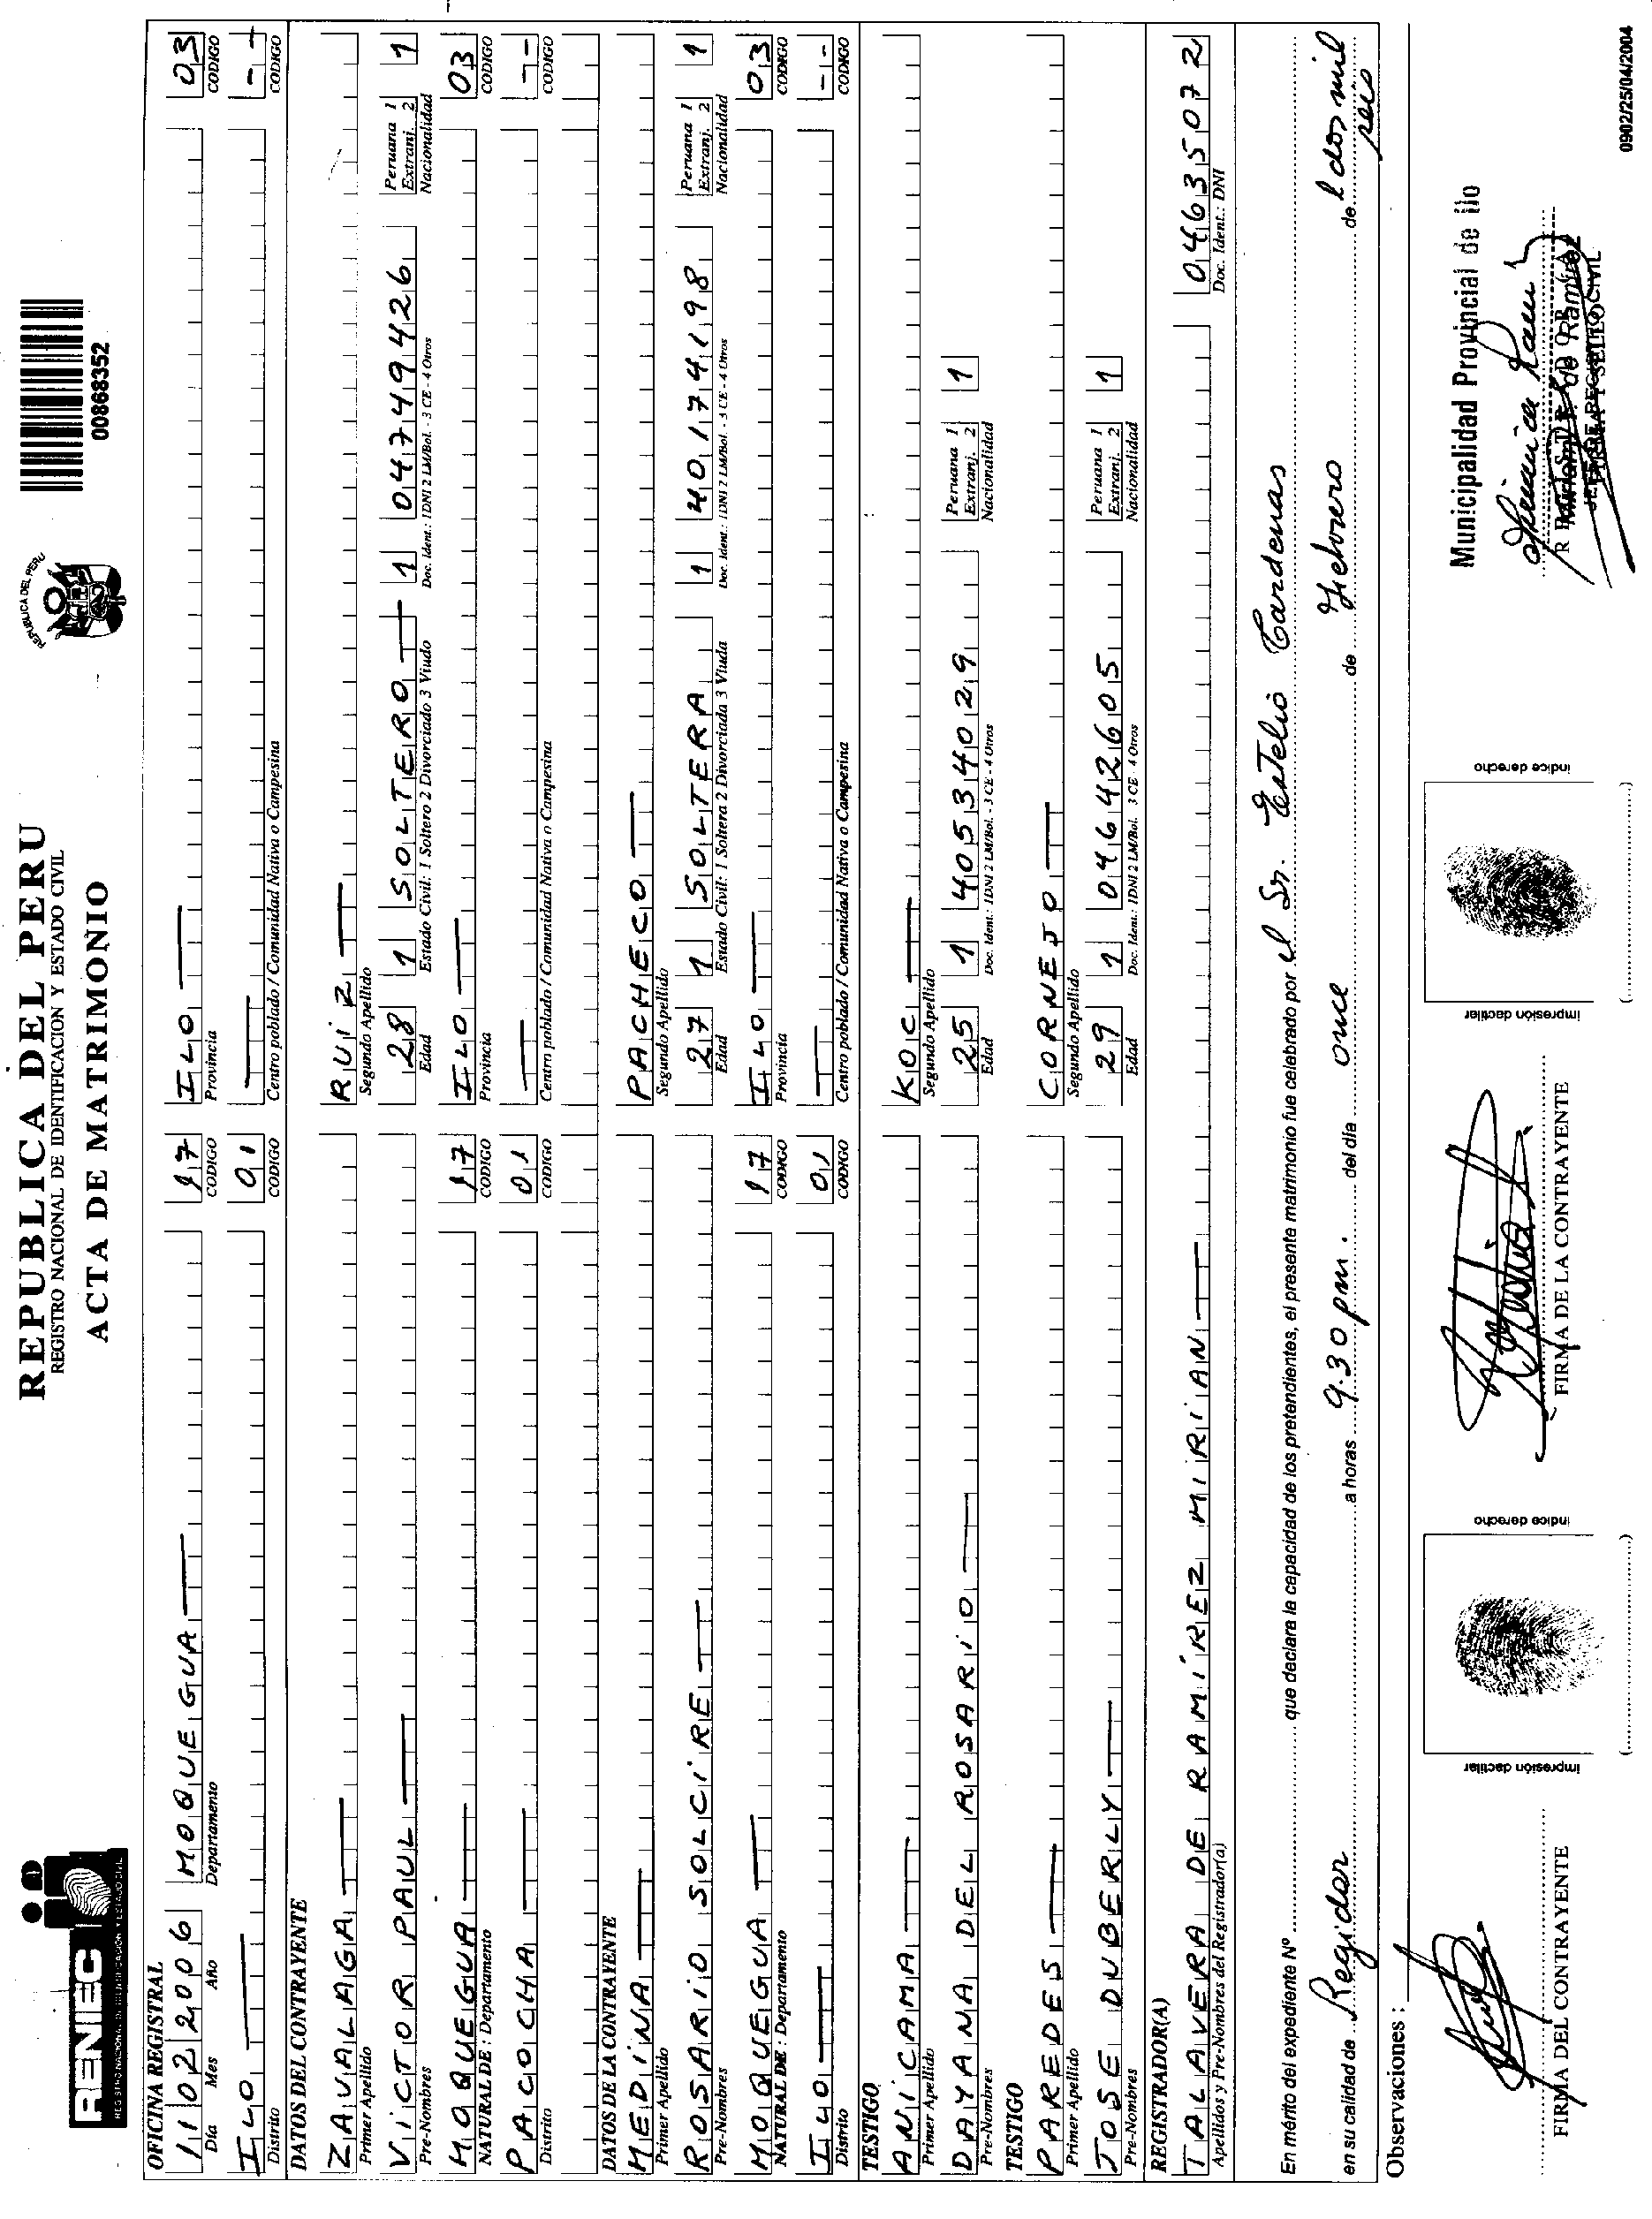 RENIEC
REGISTRO NACIONAL DE IDENTIFICACION Y ESTADO CIVIL
REPUBLICA DEL PERU
REGISTRO NACIONAL DE IDENTIFICACION Y ESTADO CIVIL
ACTA DE MATRIMONIO
REPUBLICA DEL PERU
00868352
OFICINA REGISTRAL
11022006 MOQUEGUA 17 ILO 03
Día Mes Año Departamento CODIGO Provincia CODIGO
ILO 01 --
Distrito CODIGO Centro poblado / Comunidad Nativa o Campesina CODIGO
DATOS DEL CONTRAYENTE
ZAVALAGA RUIZ
Primer Apellido Segundo Apellido
VICTOR PAUL 28 1 SOLTERO 1 04749426 Peruana 1 Extranj. 2 1
Pre-Nombres Edad Estado Civil: 1 Soltero 2 Divorciado 3 Viudo Doc. Ident.: 1DNI 2 LM/Bol. - 3 CE - 4 Otros Nacionalidad
MOQUEGUA 17 ILO 03
NATURAL DE : Departamento CODIGO Provincia CODIGO
PACOCHA 01 --
Distrito CODIGO Centro poblado / Comunidad Nativa o Campesina CODIGO
DATOS DE LA CONTRAYENTE
MEDINA PACHECO
Primer Apellido Segundo Apellido
ROSARIO SOLCIRE 27 1 SOLTERA 1 40174198 Peruana 1 Extranj. 2 1
Pre-Nombres Edad Estado Civil: 1 Soltera 2 Divorciada 3 Viuda Doc. Ident.: 1DNI 2 LM/Bol. - 3 CE - 4 Otros Nacionalidad
MOQUEGUA 17 ILO 03
NATURAL DE : Departamento CODIGO Provincia CODIGO
ILO 01 --
Distrito CODIGO Centro poblado / Comunidad Nativa o Campesina CODIGO
TESTIGO
ANICAMA KOC
Primer Apellido Segundo Apellido
DAYANA DEL ROSARIO 25 1 40534029 Peruana 1 Extranj. 2 1
Pre-Nombres Edad Doc. Ident.: 1DNI 2 LM/Bol. - 3 CE - 4 Otros Nacionalidad
TESTIGO
PAREDES CORNEJO
Primer Apellido Segundo Apellido
JOSE DUBERLY 29 1 04642605 Peruana 1 Extranj. 2 1
Pre-Nombres Edad Doc. Ident.: 1DNI 2 LM/Bol. 3 CE - 4 Otros Nacionalidad
REGISTRADOR(A)
TALAVERA DE RAMÍREZ MIRIAN 04635072
Apellidos y Pre-Nombres del Registrador(a) Doc. Ident.: DNI
En mérito del expediente Nº que declara la capacidad de los pretendientes, el presente matrimonio fue celebrado por el Sr. Cardenas
en su calidad de Regidor a horas 9.30 pm. del día once de Febrero de l dos mil
seis
Observaciones :
Municipalidad Provincial de Ilo
impresión dactilar índice derecho
impresión dactilar índice derecho
FIRMA DEL CONTRAYENTE
FIRMA DE LA CONTRAYENTE
de Ramírez
(....................)
(....................)
0902/25/04/2004